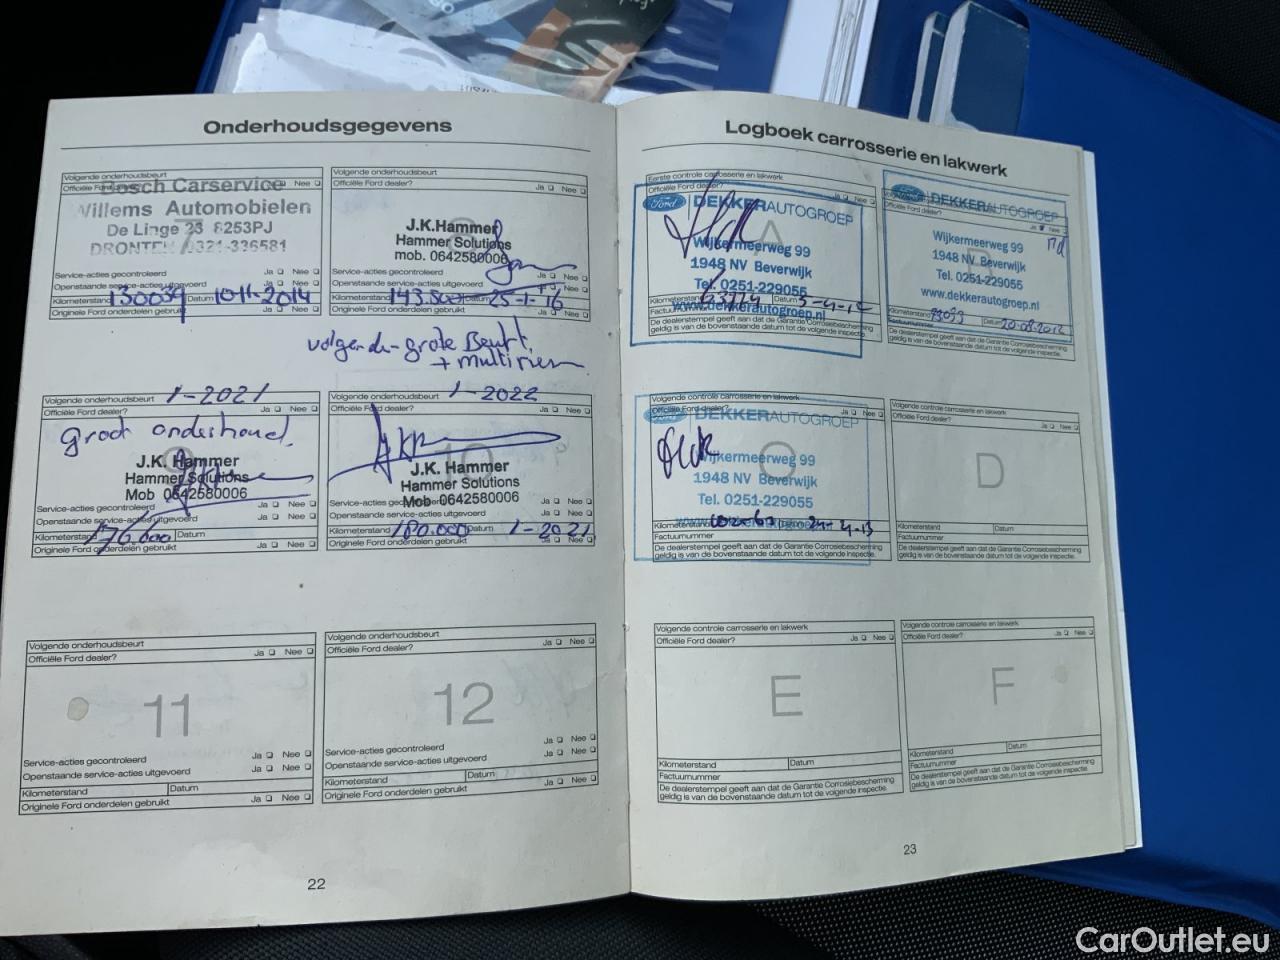 Onderhoudsgegevens
Volgende onderhoudsbeurt
Officiële Ford dealer? Ja Nee
Bosch Carservice
Willems Automobielen
De Linge 23 8253PJ
DRONTEN 0321-336581
Service-acties gecontroleerd Ja Nee
Openstaande service-acties uitgevoerd Ja Nee
Kilometerstand 130059 Datum 10-11-2014
Originele Ford onderdelen gebruikt Ja Nee
Volgende onderhoudsbeurt
Officiële Ford dealer? Ja Nee
J.K.Hammer
Hammer Solutions
mob. 0642580006
Service-acties gecontroleerd Ja Nee
Openstaande service-acties uitgevoerd Ja Nee
Kilometerstand 143.800 Datum 25-1-16
Originele Ford onderdelen gebruikt
volgende-grote Beurt
+ multiriem
Volgende onderhoudsbeurt 1-2021
Officiële Ford dealer? Ja Nee
groot onderhoud
J.K. Hammer
Hammer Solutions
Mob 0642580006
Service-acties gecontroleerd Ja Nee
Openstaande service-acties uitgevoerd Ja Nee
Kilometerstand 176.000 Datum
Originele Ford onderdelen gebruikt Ja Nee
Volgende onderhoudsbeurt 1-2022
Officiële Ford dealer? Ja Nee
10
J.K. Hammer
Hammer Solutions
Mob 0642580006
Service-acties gecontroleerd Ja Nee
Openstaande service-acties Ja Nee
Kilometerstand 180.000 Datum 1-2021
Originele Ford onderdelen gebruikt Ja Nee
Volgende onderhoudsbeurt
Officiële Ford dealer? Ja Nee
11
Service-acties gecontroleerd Ja Nee
Openstaande service-acties uitgevoerd Ja Nee
Kilometerstand Datum
Originele Ford onderdelen gebruikt Ja Nee
Volgende onderhoudsbeurt
Officiële Ford dealer? Ja Nee
12
Service-acties gecontroleerd Ja Nee
Openstaande service-acties uitgevoerd Ja Nee
Kilometerstand Datum
Originele Ford onderdelen gebruikt Ja Nee
22
Logboek carrosserie en lakwerk
Eerste controle carrosserie en lakwerk
Officiële Ford dealer? Ja Nee
A
Ford DEKKERAUTOGROEP
Wijkermeerweg 99
1948 NV Beverwijk
Tel. 0251-229055
www.dekkerautogroep.nl
Kilometerstand Datum
De dealerstempel geeft aan dat de Garantie Corrosiebescherming
geldig is van de bovenstaande datum tot de volgende inspectie.
Officiële Ford dealer? Ja Nee
DEKKERAUTOGROEP
Wijkermeerweg 99
1948 NV Beverwijk
Tel. 0251-229055
www.dekkerautogroep.nl
Kilometerstand
Factuurnummer Datum 20-08-2012
De dealerstempel geeft aan dat de Garantie Corrosiebescherming
geldig is van de bovenstaande datum tot de volgende inspectie.
Volgende controle carrosserie en lakwerk
Officiële Ford dealer? Ja Nee
C
DEKKERAUTOGROEP
Wijkermeerweg 99
1948 NV Beverwijk
Tel. 0251-229055
Kilometerstand
Factuurnummer
De dealerstempel geeft aan dat de Garantie Corrosiebescherming
geldig is van de bovenstaande datum tot de volgende inspectie.
Volgende controle carrosserie en lakwerk
Officiële Ford dealer? Ja Nee
D
Kilometerstand Datum
Factuurnummer
De dealerstempel geeft aan dat de Garantie Corrosiebescherming
geldig is van de bovenstaande datum tot de volgende inspectie.
Volgende controle carrosserie en lakwerk
Officiële Ford dealer? Ja Nee
E
Kilometerstand Datum
Factuurnummer
De dealerstempel geeft aan dat de Garantie Corrosiebescherming
geldig is van de bovenstaande datum tot de volgende inspectie.
Volgende controle carrosserie en lakwerk
Officiële Ford dealer? Ja Nee
F
Kilometerstand Datum
Factuurnummer
De dealerstempel geeft aan dat de Garantie Corrosiebescherming
geldig is van de bovenstaande datum tot de volgende inspectie.
23
CarOutlet.eu